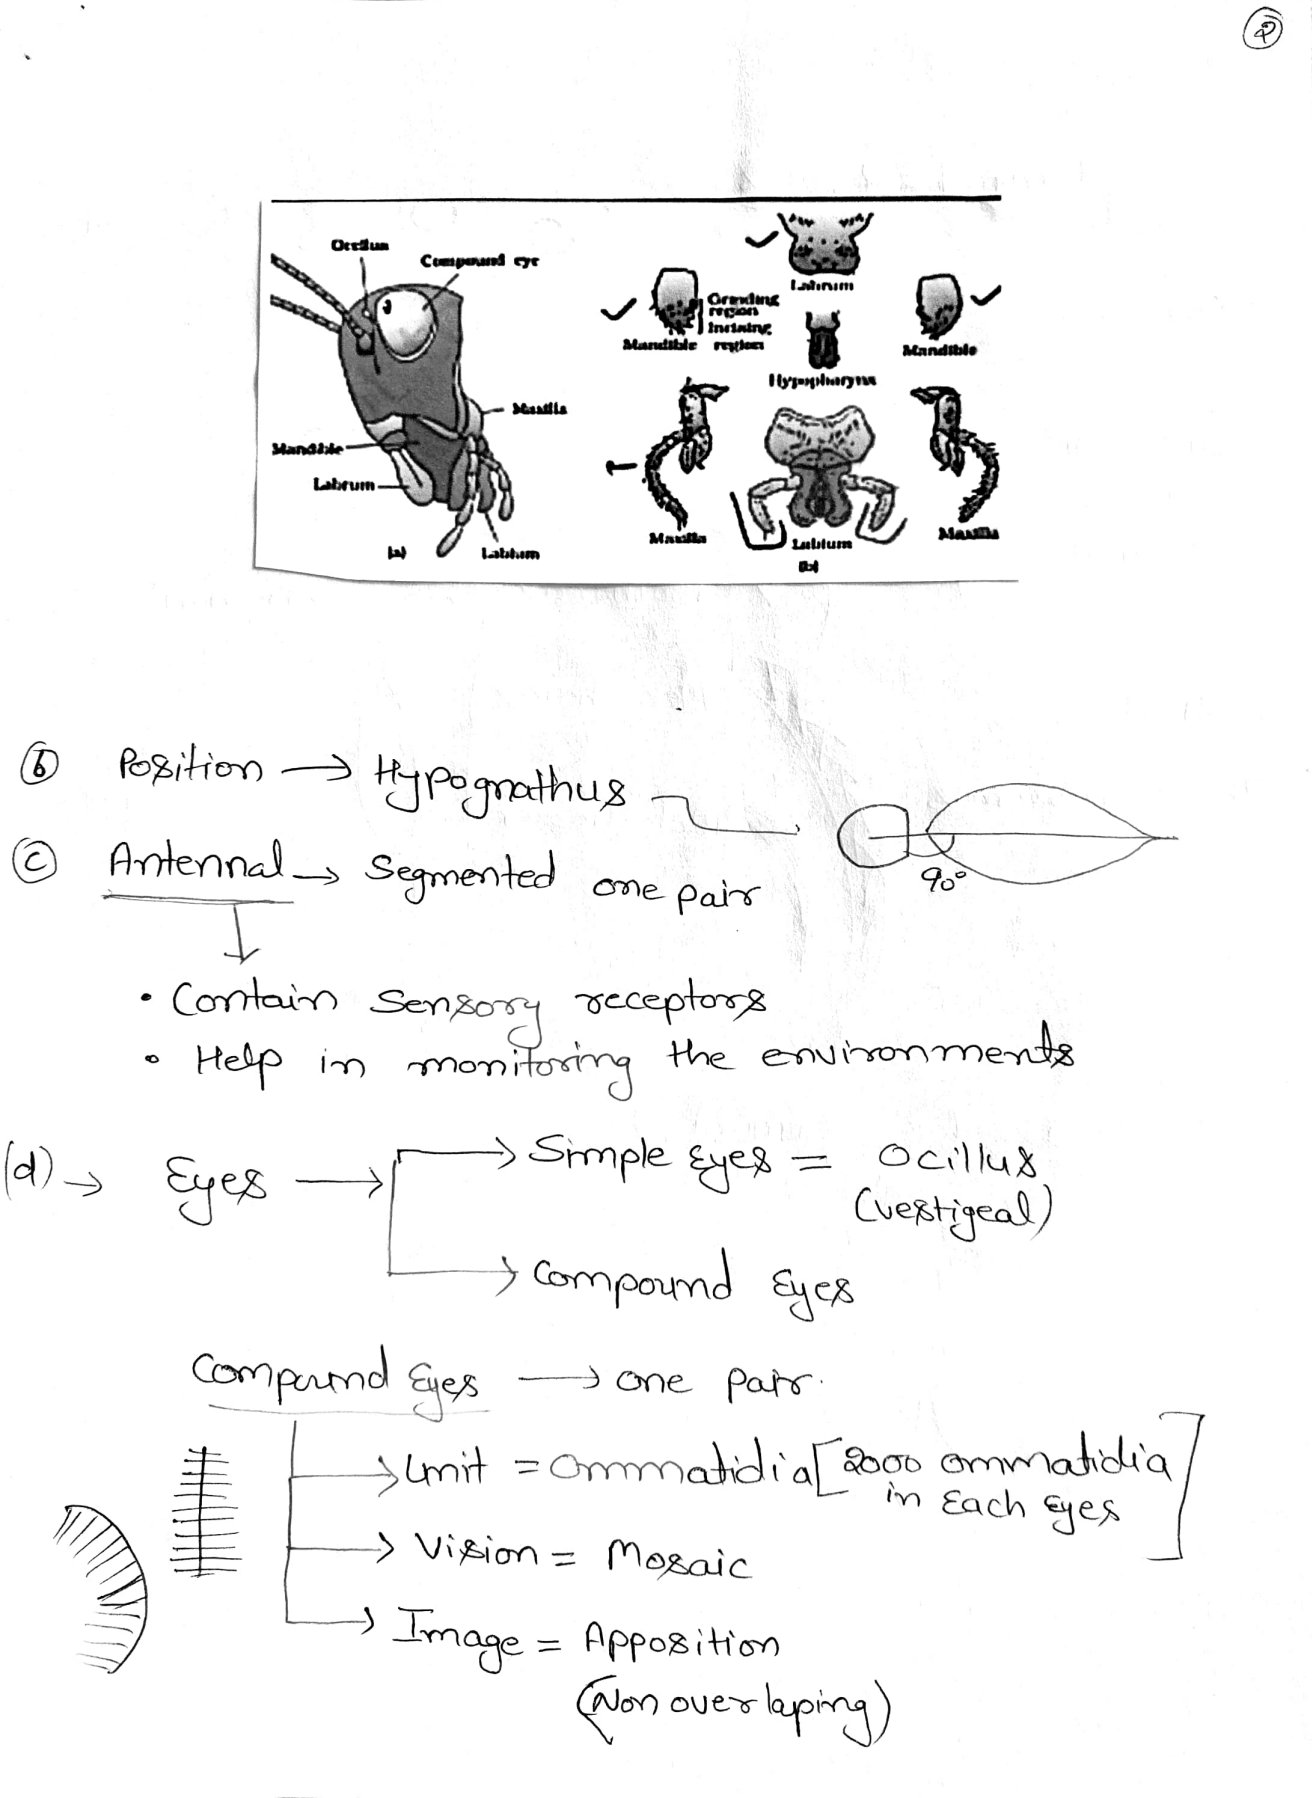 2
Ocellus
Compound eye
Mandible
Labrum
Maxilla
Labium
(a)
Labrum
Grinding
region
Incising
region
Mandible
Mandible
Hypopharynx
Maxilla
Labium
Maxilla
(b)
(b) Position → Hypognathus
90°
(c) Antennal → Segmented one pair
• Contain Sensory receptors
• Help in monitoring the environments
(d) → Eyes → Simple Eyes = Ocillus
(vestigeal)
→ Compound Eyes
Compound Eyes → one pair.
→ Unit = Ommatidia [2000 ommatidia
in Each Eyes]
→ Vision = Mosaic
→ Image = Apposition
(Non overlaping)